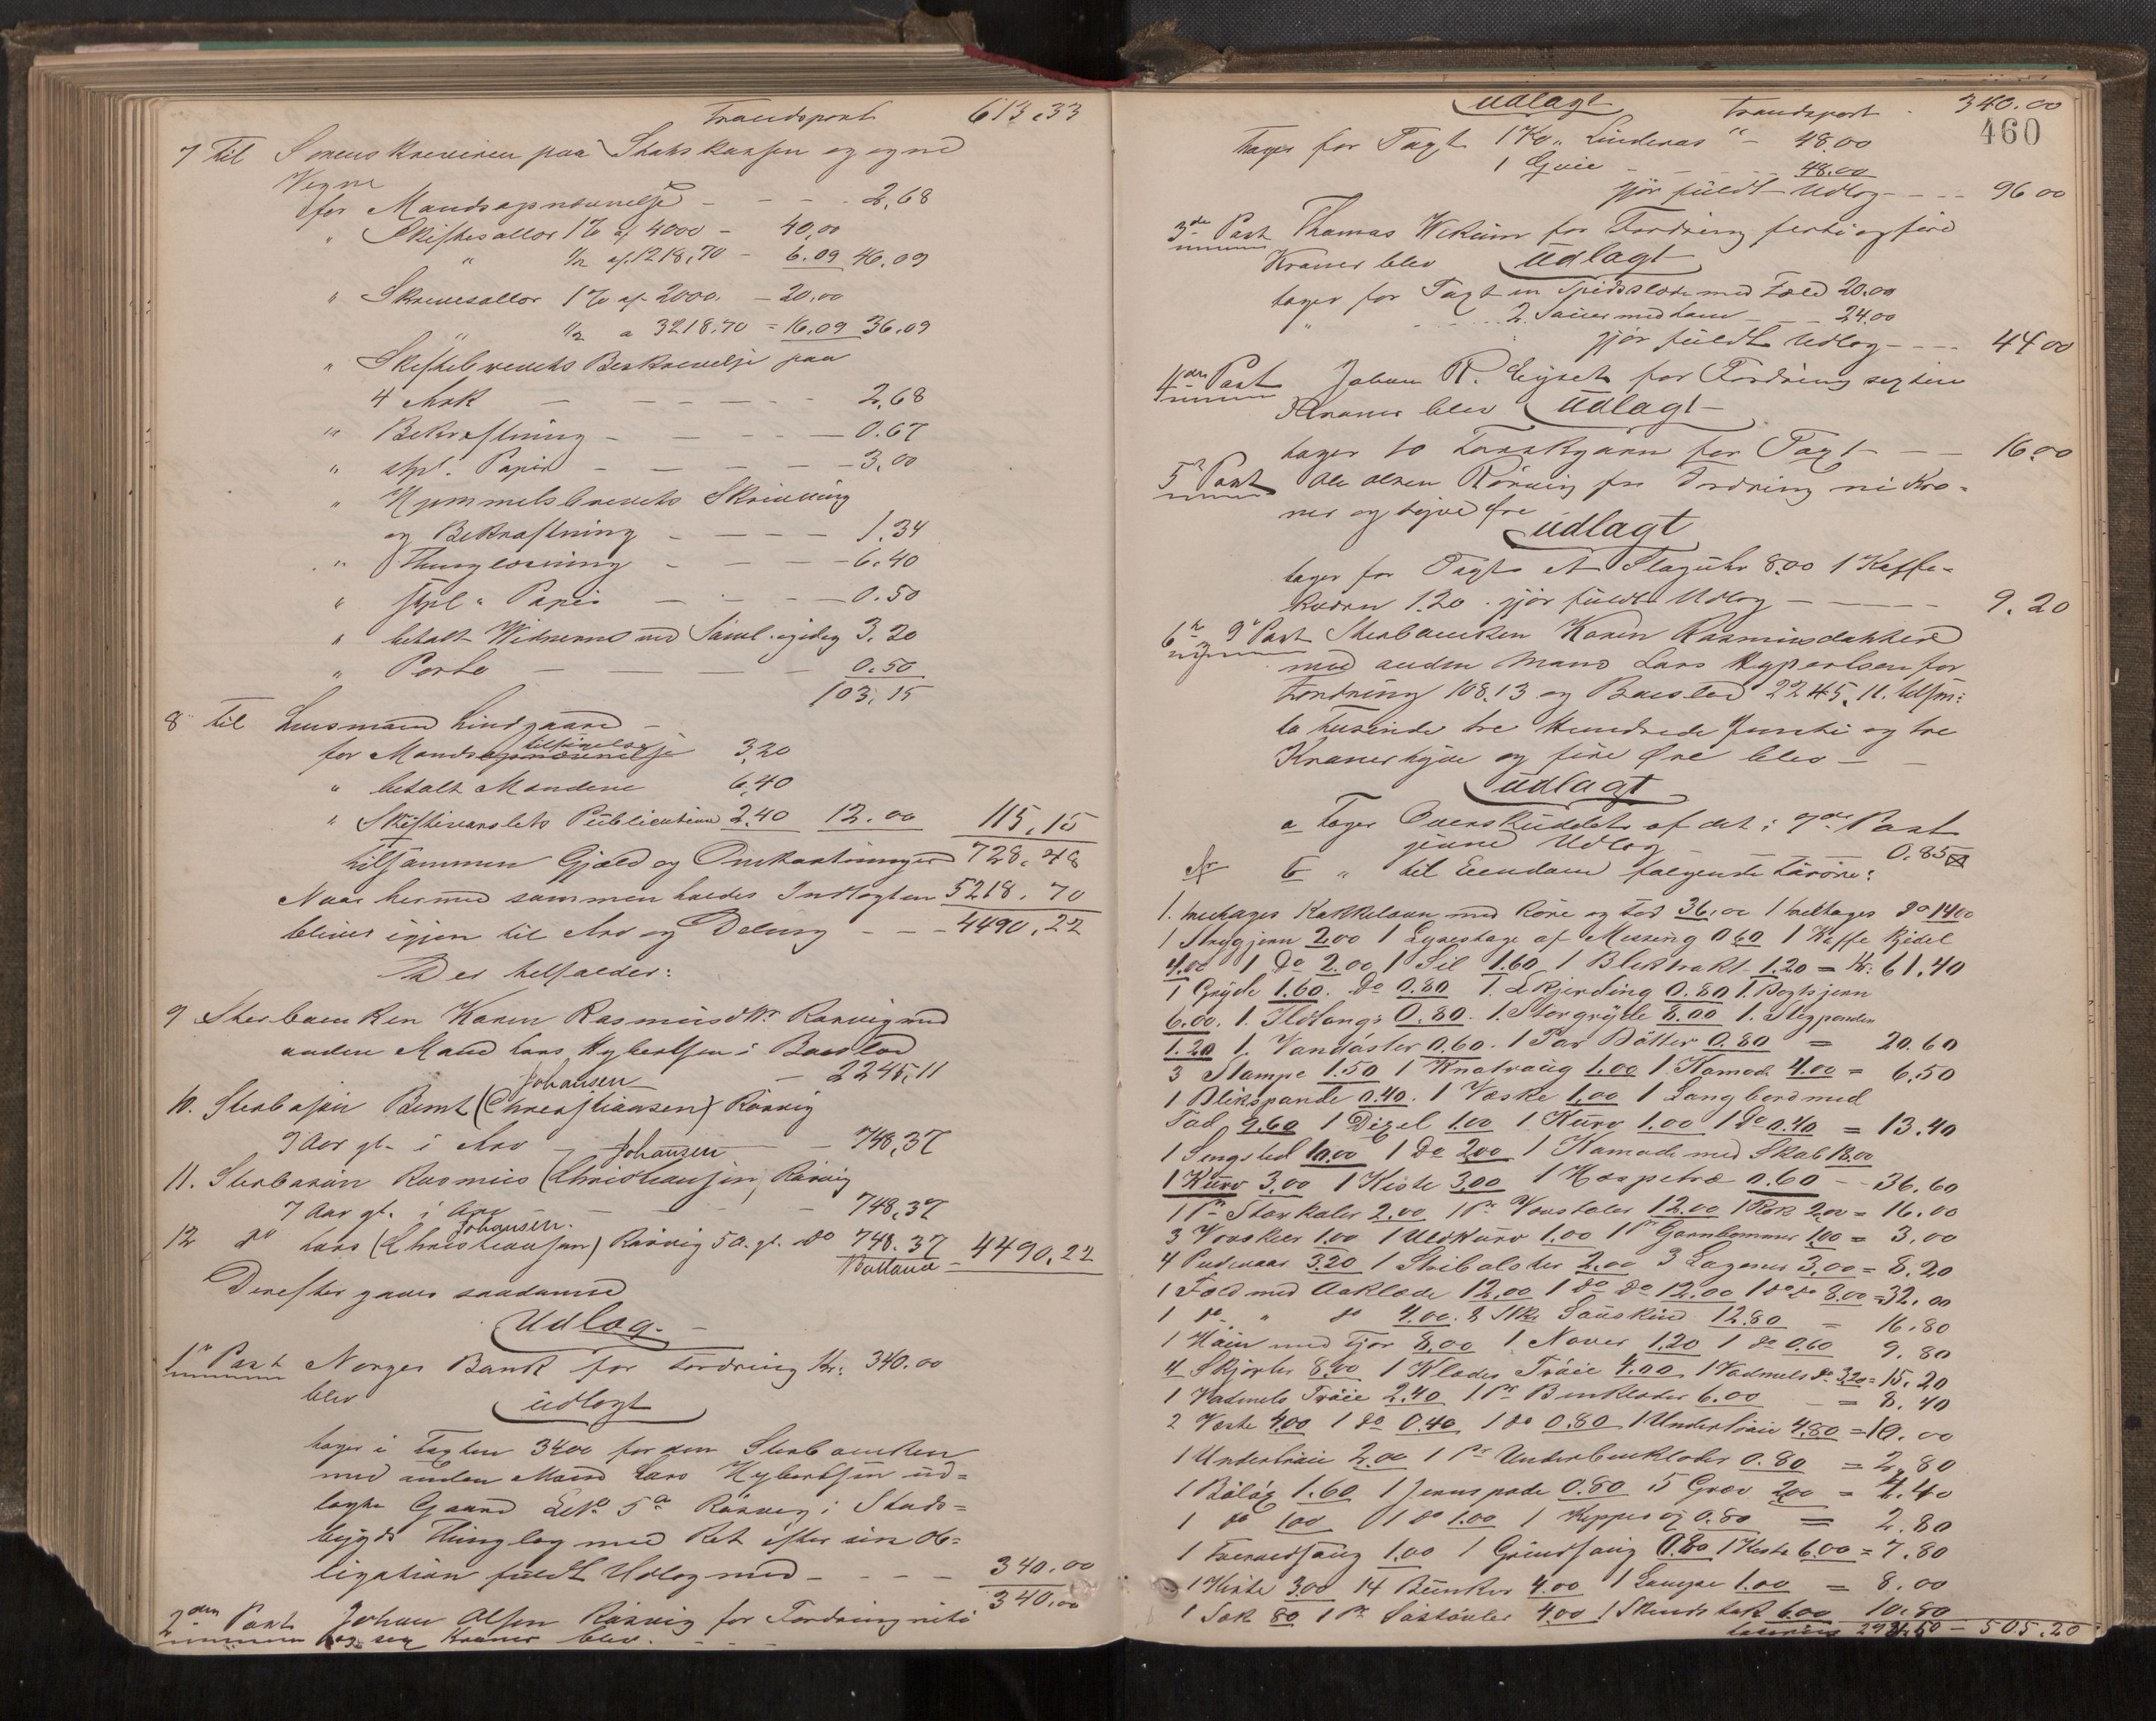 Transport 613,33
7 Til Sorenskriveren paa Statskassen og egne
Vegne
for Mandsopnævnelse - - - 2,68
" Skiftesallor 1% af 4000 - 40,00
" ½ af 1218,70 - 6.09 46,09
" Skriversallor 1% af 2000. - 20,00
" ½ a 3218.70 = 16,09 36,09
" Skiftebrevets Beskrivelse paa
4 Ark - - - - - 2,68
" Bekræftning - - - - 0.67
" stpl. Papir - - - - 3,00
" Hjemmelsbrevets Skrivning
og Bekræftning - - - - 1.34
" Thinglæsning - - - 6.40
" stpl. Papir - - - 0.50
" betalt Vidnerne ved Saml. 3.20
" Porto - - - 0.50
103,15
8 til Lensmand Lindgaard -
tilsigelse
for Mandsopnævnelse 3,20
" betalt Mændene 6,40
" Skiftesamlets Publication 2,40 12.00 115,15
tilsammen Gjæld og Omkostninger 728,48
Naar hermed sammenholdes Indtægten 5218.70
bliver igjen til Arv og Deling - - - 4490,22
Der tilfalder:
9 Sterboenken Karen Rasmusdtr Rørvig med
anden Mand Lars Hybertsen i Boeslod
- 2245,11
Johansen
10. Sterbosøn Bernt (Christiansen) Rørvig
9 Aar gl. i Arv - - 748,37
Johansen
11. Sterbosøn Rasmus (Christiansen) Rørvig
7 Aar gl. i Arv - - - 748,37
Johansen.
12 do Lars (Christiansen) Rørvig 5 A. gl. do 748.37 4490,22
Ballance
Derefter gaves saadanne
Udlæg. -
1ste Post Norges Bank for Fordring Kr: 340.00
blev udlagt
tager i Taxten 3400 for den Sterboenken
med anden Mand Lars Hybertsen ud-
lagte Gaard No 5a Rørvig i Stads-
bygds Thinglag med Ret efter sin Ob-
ligation fuldt Udlæg med - - - 340.00
340,00
2den Post Johan Olsen Rørvig for Fordring niti
og sex Kroner blev. - - -
udlagt Transport . 340.00
460
tager for Taxt 1 Ko " Linderos " - 48.00
1 Qvie - - - 48.00
gjør fuldt Udlæg - - - 96 00
3de Post Thomas for Fordring førti og fire
Kroner blev udlagt
tager for Taxt en Spidsslæde med Fæld 20.00
" 2 Sauer med Lam - 24.00
gjør fuldt Udlæg - - - 44 00
4de Post Johan R. for Fordring sexten
Kroner blev udlagt
tager 10 Torskgarn for Taxt - - 16.00
5te Post Ole Olsen Rørvig for Fordring ni Kro-
ner og tyve Øre
udlagt
tager for Taxt et Slaguhr 8.00 1 Kaffe-
kværn 1.20 gjør fuldt Udlæg - - - 9.20
6te og 9de Post Sterboenken Karen Rasmusdatter
med anden Mand Lars Hypertsen for
Fordring 108.13 og Boeslod 2245,11. tilsm:
to tusinde tre Hundrede femti og tre
Kroner tyve og fire Øre blev -
udlagt
a tager Overskuddet af det i 7de Post
givne Udlæg 0.85
b " til Eiendom følgende Løsøre:
1. treetages Kakkelovn med Rør og Fod 36,00 1 toetages Do 14 00
1 Strygjern 2.00 1 Lysestage af Messing 0 60 1 Kaffe Kjedel
4.00 1 Do 2.00 1 Sil 1.60 1 Bliktrakt 1.20 = Kr. 61.40
1 Gryde 1.60. Do 0.80 1. Skjerding 0.80 1.
6.00. 1. Ildtang 0.80. 1. Storgryde 8.00 1. Stegpande
1.20 1. 0.60. 1 Par Bøtter 0.80 = 20.60
3 Stampe 1.50 1 Knatraug 1.00 1 Komod 4.00 = 6,50
1 Blikspande 0.40. 1 Væske 1,00 1 Langbord med
Fod 9.60 1 Dizel 1.00 1. Kurv 1.00 1 Do 0.40 = 13.40
1 Sengsted 10.00 1 Do 2.00 1 Komode med Skab 18.00
1 Kurv 3,00 1 Kiste 3.00 1 0.60 - - 36.60
1 Pr 2.00 1 Pr 12.00 1 Rok 2,00 = 16.00
3 1.00 1 Uldkurv 1.00 1 Pr 1.00 = 3.00
4 Pudevaar 3.20 1 2.00 3 Lagener 3.00 = 8.20
1 Fæld med Aaklæde 12,00 1 do Do 12.00 1 do do 8.00 = 32.00
1 do " do 4.00. 8 Stk Sauskind 12.80 = 16.80
1 med 8,00 1 Naver 1.20 1 do 0.60 9.80
4 Skjorter 8.00 1 Klædes Trøie 4.00 1 Vadmels do 3.20 = 15.20
1 Vadmels Trøie 2.40 1 Pr Benklæder 6.00 = 8.40
2 Veste 4.00 1 do 0.40 1 do 0.80 1 Undertrøie 4.80 = 10.00
1 Undertrøie 2.00 1 Pr Underbenklæder 0.80 = 2,80
1 Bøløx 1.60 1 Jernspade 0.80 5 Grev 2.00 = 4.40
1 do 1.00 1 do 1.00 1 0.80 = 2.80
1 1.00 1 Grindsaug 0.80 1 Kiste 6.00 = 7.80
1 Kiste 3.00 14 4.00 1 Lampe 1.00 = 8.00
1 Sæk 80 1 Pr Søstøvler 4.00 1 6.00 10.80
505.20